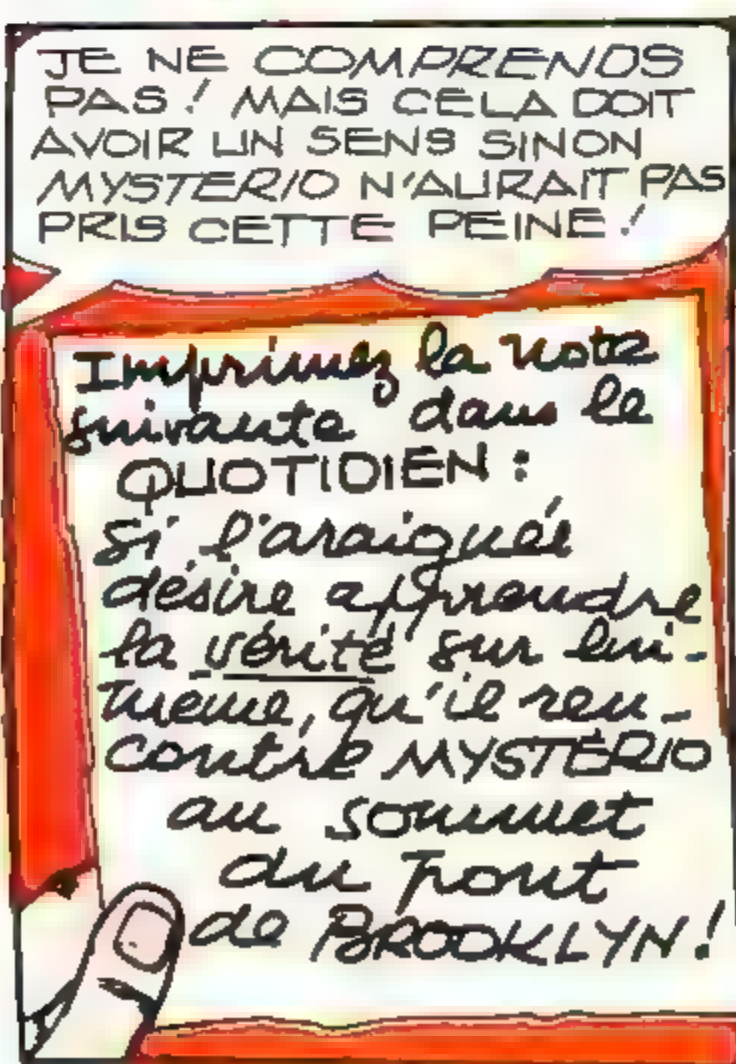 JE NE COMPRENDS
PAS ! MAIS CELA DOIT
AVOIR UN SENS SINON
MYSTERIO N'AURAIT PAS
PRIS CETTE PEINE !
Imprimez la note
suivante dans le
QUOTIDIEN :
Si l'araignée
désire apprendre
la vérité sur lui-
même, qu'il ren-
contre MYSTÉRIO
au sommet
du pont
de BROOKLYN !